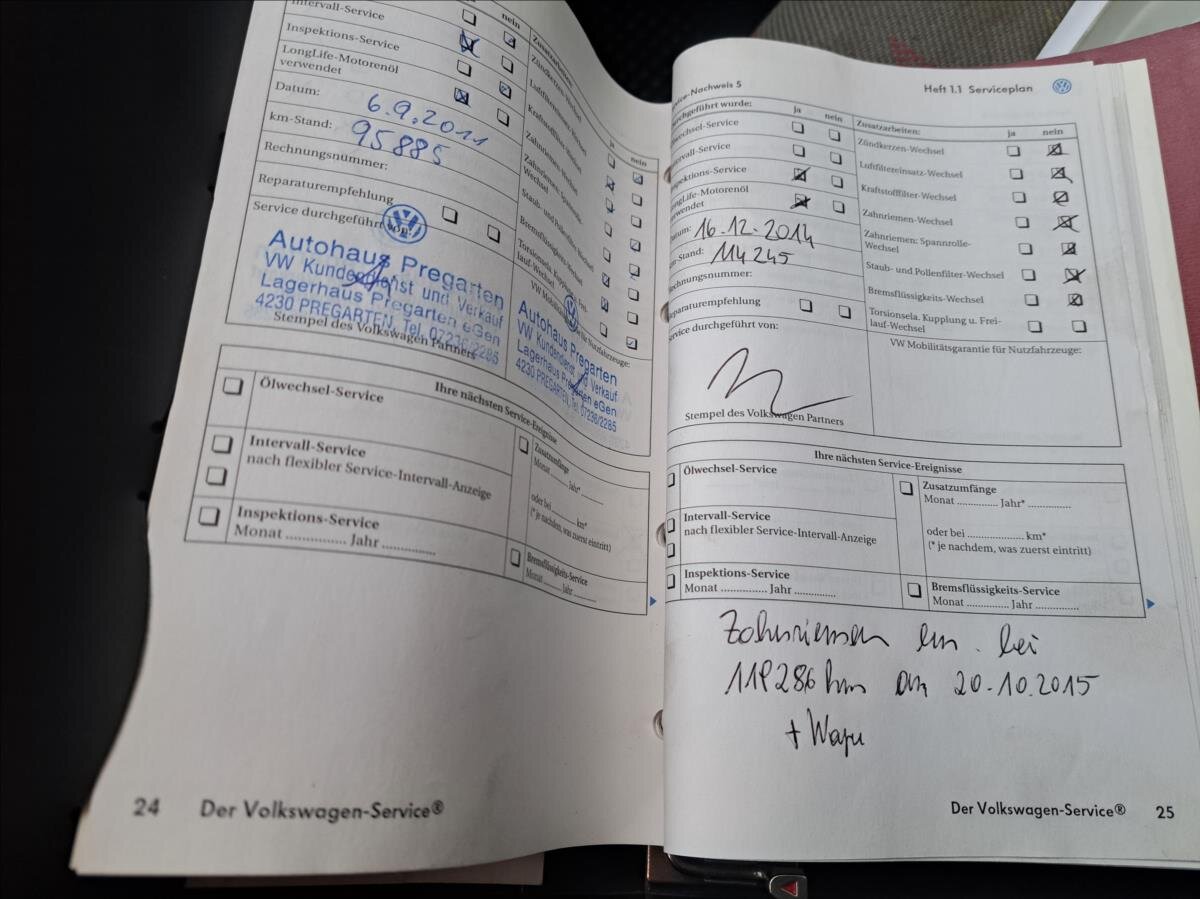 Intervall-Service
nein
Inspektions-Service
LongLife-Motorenöl
verwendet
Datum:
6.9.2011
km-Stand:
95885
Rechnungsnummer:
Reparaturempfehlung
Service durchgeführt von:
Autohaus Pregarten
VW Kundendienst und Verkauf
Lagerhaus Pregarten eGen
4230 PREGARTEN, Tel. 07236/2285
Stempel des Volkswagen Partners
Zusatzarbeiten:
ja
nein
Zündkerzen-Wechsel
Luftfiltereinsatz-Wechsel
Kraftstofffilter-Wechsel
Zahnriemen-Wechsel
Zahnriemen: Spannrolle-
Wechsel
Staub- und Pollenfilter-Wechsel
Bremsflüssigkeits-Wechsel
Torsionsela. Kupplung u. Frei-
lauf-Wechsel
VW Mobilitätsgarantie für Nutzfahrzeuge:
Autohaus Pregarten
VW Kundendienst und Verkauf
Lagerhaus Pregarten eGen
4230 PREGARTEN, Tel. 07236/2285
Ihre nächsten Service-Ereignisse
Ölwechsel-Service
Intervall-Service
nach flexibler Service-Intervall-Anzeige
Inspektions-Service
Monat ............... Jahr .............
Zusatzumfänge
Monat ........ Jahr* ........
oder bei ........ km*
(* je nachdem, was zuerst eintritt)
Bremsflüssigkeits-Service
Monat ........ Jahr ........
24 Der Volkswagen-Service®
Service-Nachweis 5
Heft 1.1 Serviceplan
durchgeführt wurde:
ja
nein
Ölwechsel-Service
Intervall-Service
Inspektions-Service
LongLife-Motorenöl
verwendet
Datum: 16.12.2014
km-Stand: 114245
Rechnungsnummer:
Reparaturempfehlung
Service durchgeführt von:
Stempel des Volkswagen Partners
Zusatzarbeiten:
ja
nein
Zündkerzen-Wechsel
Luftfiltereinsatz-Wechsel
Kraftstofffilter-Wechsel
Zahnriemen-Wechsel
Zahnriemen: Spannrolle-
Wechsel
Staub- und Pollenfilter-Wechsel
Bremsflüssigkeits-Wechsel
Torsionsela. Kupplung u. Frei-
lauf-Wechsel
VW Mobilitätsgarantie für Nutzfahrzeuge:
Ihre nächsten Service-Ereignisse
Ölwechsel-Service
Intervall-Service
nach flexibler Service-Intervall-Anzeige
Inspektions-Service
Monat ............... Jahr .............
Zusatzumfänge
Monat ............... Jahr* ...............
oder bei .................... km*
(* je nachdem, was zuerst eintritt)
Bremsflüssigkeits-Service
Monat ............... Jahr ...............
Zahnriemen ern. bei
119286 km am 20.10.2015
+ Wapu
Der Volkswagen-Service® 25